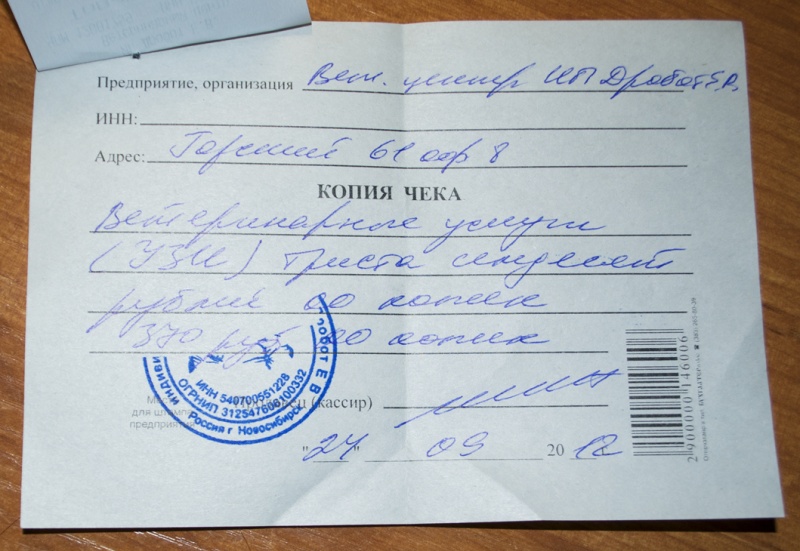 Предприятие, организация Вет. центр ИП Дробот Е.В.
ИНН:
Адрес: Горский 61 оф 8
КОПИЯ ЧЕКА
Ветеринарные услуги
(УЗИ) Триста семьдесят
рублей 00 копеек
370 руб 00 копеек
робот Е В
ИНН 540700551228
ОГРНИП 312547606100332
Россия г Новосибирск
Индиви
(кассир)
для штампа
предприятия
"24" 09 2012
2 900000 146006